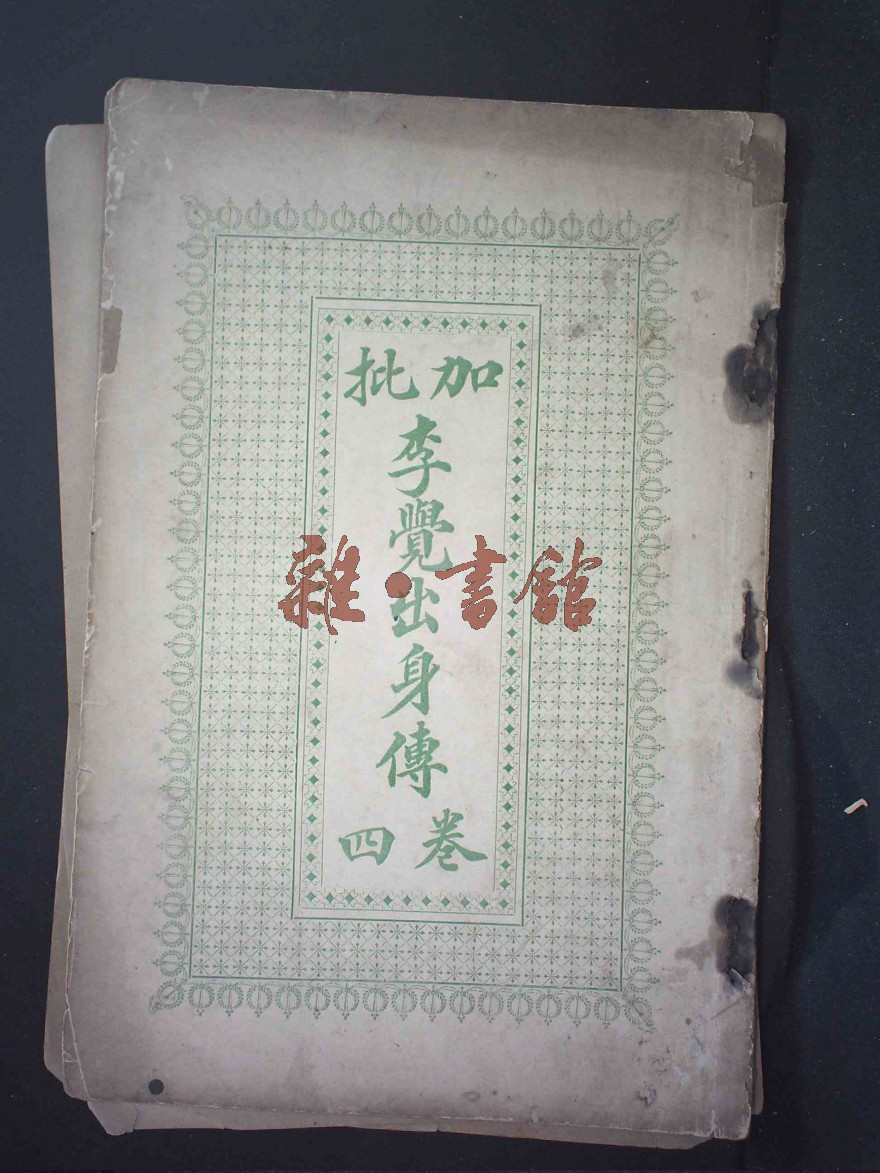 加批
李覺出身傳
卷四
雜·書館